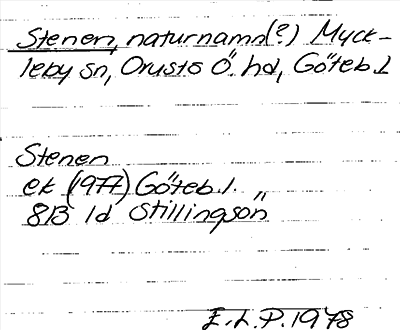 Stenen, naturnamn(?) Myck-
leby sn, Orusts Ö. hd, Göteb. l
Stenen
ek (1977) Göteb. l.
8B 1d Stillingsön
E.L.P. 1978